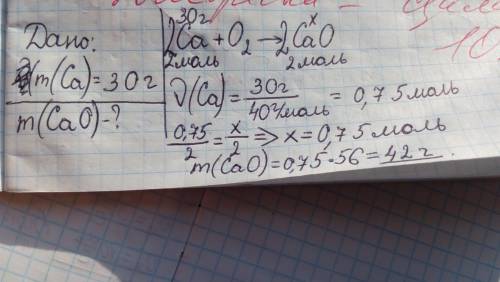 Дано:
m(Ca)=30г
m(CaO)-?
30г x
2Ca+O₂→2CaO
2моль 2моль
ν(Ca)=30г/40г/моль=0,75моль
0,75/2=x/2 => x=0,75моль
m(CaO)=0,75·56=42г.